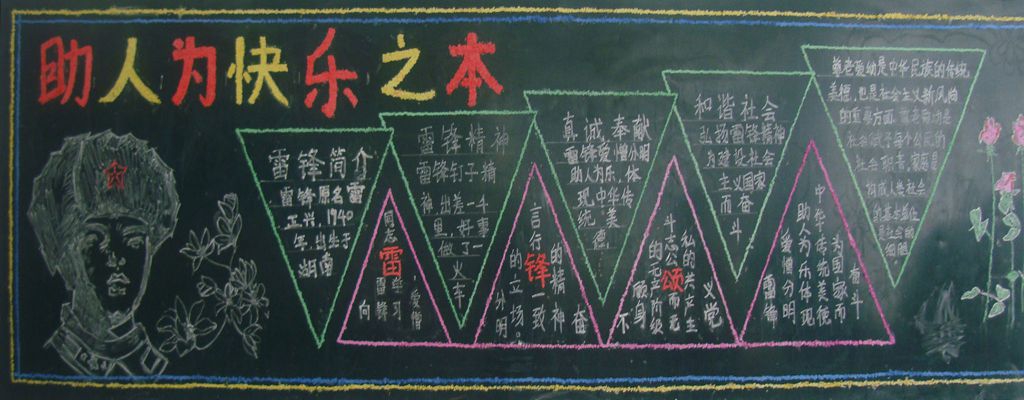 助人为快乐之本
雷锋简介
雷锋原名雷
正兴，1940
年，出生于
湖南
雷锋精神
雷锋钉子精
神，出差一千
里，好事
做了一
火车
真诚奉献
雷锋爱憎分明
助人为乐，体
现中华传
统美
德
和谐社会
弘扬雷锋精神
为建设社会
主义国家
而奋
斗
尊老爱幼是中华民族的传统
美德，也是社会主义新风尚
的重要方面，尊老爱幼是
社会赋予每个公民的
社会职责，家庭是
构成人类社会
的基本单位
是社会的
细胞
雷
向
雷锋
学习
爱憎
锋
分明
的立场。
言行一致
的精神
奋
颂
不
顾身
的无产阶级
斗志公而无
私的共产主
义党
雷锋
爱憎分明
助人为乐体现
中华传统美德
为国家而
奋斗